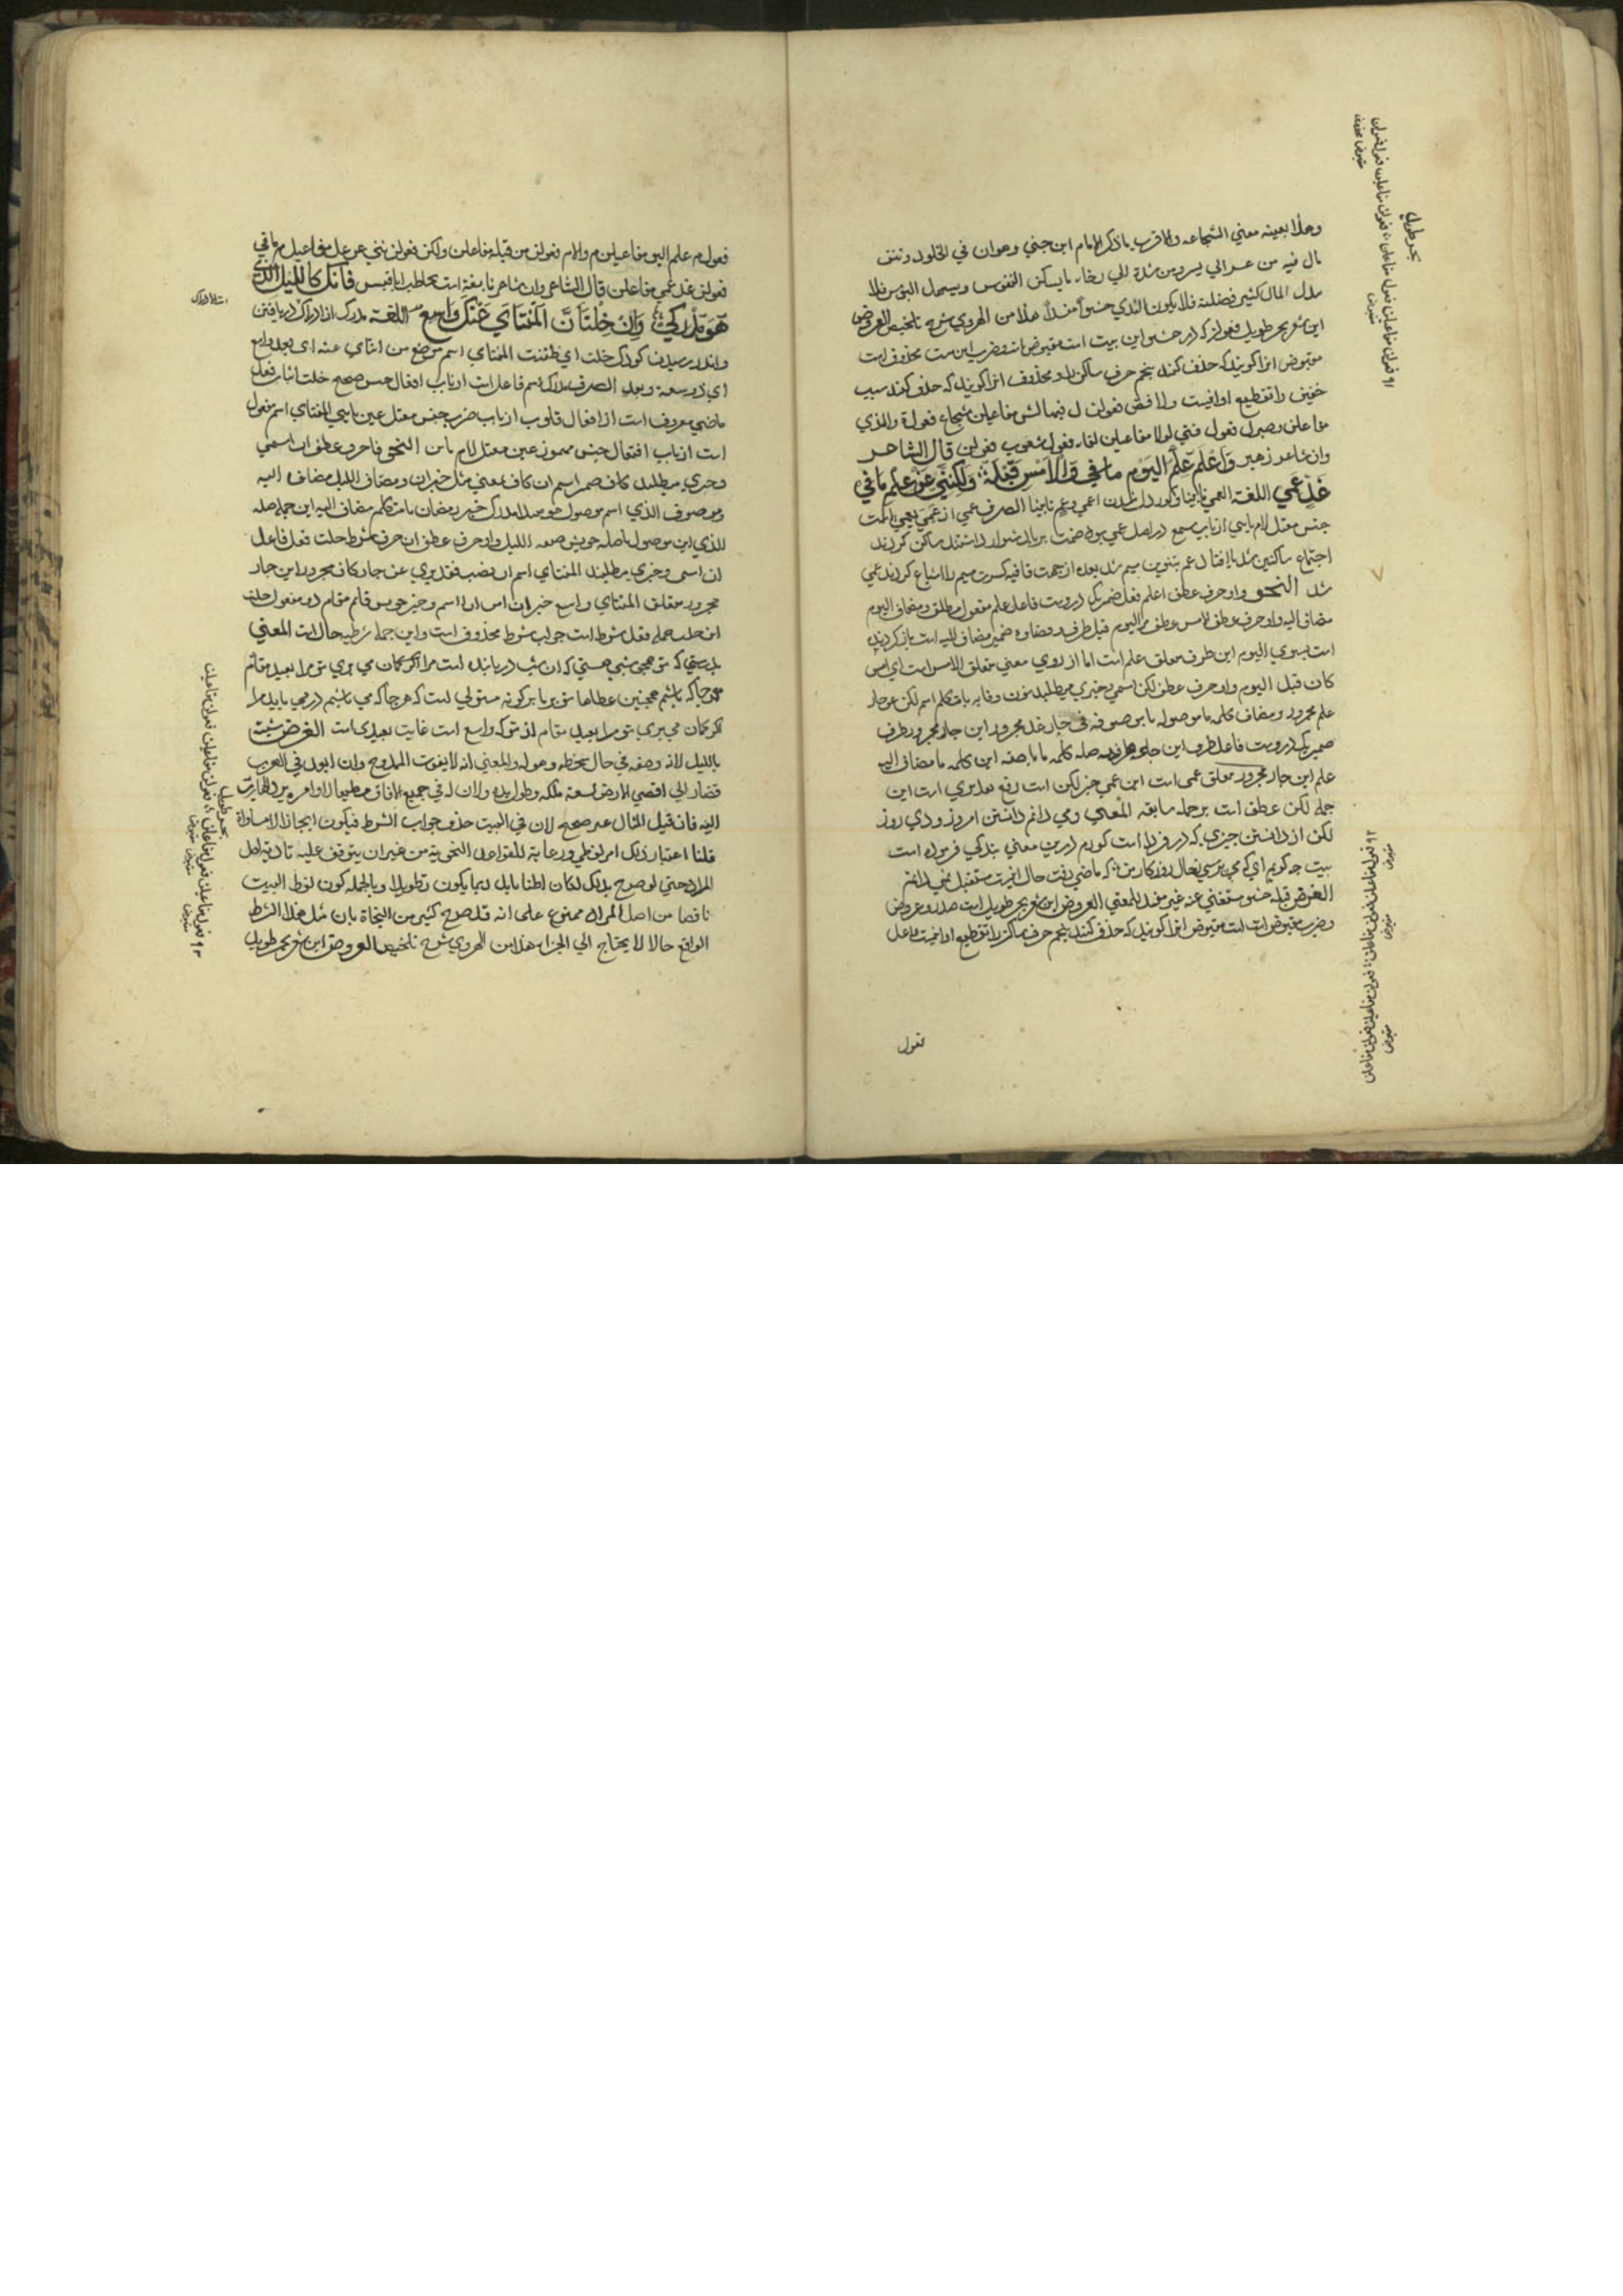 وهذا بعينه معني الشجاعه والاقرب ما ذكر الامام ابن جني وهوان في الخلود وتنقل
ال فيه من عسر الي يسر ومن شدة الي رخاء ما يسكن النفوس ويسهل البؤس فلا
بذل المال كثير فضلة فلا يكون الندي حشواً مفسداً هذا من الهروي شرح تلخيص العروض
اين شعر بحر طويل فعولن كه در حشو اين بيت است مقبوض است وضرب اين بيت محذوف است
مقبوض انرا كويند كه حذف كنند پنجم حرف ساكن را ومحذوف انرا كويند كه حذف كنند سبب
خفيف را تقطيع او اينست ولا فض فعولن ل فيها لش مفاعيلن شجاع فعول ة والندي
مفاعلن وصبر ل فعول فتي لولا مفاعيلن لقاء فعول شعوب فعولن قال الشاعر
وان شاعر زهير وَاَعْلَمُ عِلْمَ الْيَوْمِ مَا فِي وَالْاَمْسِ قَبْلَهُ وَلٰكِنَّنِي عَنْ عِلْمِ مَا فِي
غَدٍ عَمِي اللغة العمي نابينا وكوردل شدن اعمي وعم نابينا الصرف عمي از عَمِيَ يعمي است
جنس معتل لام يايي از باب سمع در اصل عمي بود ضمت بر يا دشوار داشتند ساكن كردند
اجتماع ساكنين شد يا افتاد عم بتنوين ميم شد بعده از جهت قافيه كسرت ميم را اشباع كردند عمي
شد النحو واو حرف عطف اعلم فعل ضمير كي دروست فاعل علم مفعول مطلق ومضاف اليوم
مضاف اليه واو حرف عطف الامس عطف بر اليوم قبل ظرف ومضاف ه ضمير مضاف اليه است باز كردنده
است بسوي اليوم اين ظرف متعلق علم است اما از روي معني متعلق الامس است اي امس
كان قبل اليوم واو حرف عطف لكن اسمي وخبري ميطلبد نون وقايه يا متكلم اسم لكن عن جار
علم مجرور ومضاف كلمه ما موصوله يا موصوفه في جار غد مجرور اين جار مجرور ظرف
ضمير كه دروست فاعل ظرف اين جمله ظرفيه صله كلمه ما يا صفه اين كلمه ما مضاف اليه
علم اين جار مجرور متعلق عمي است اين عمي خبر لكن است رفع تقديري است اين
جمله لكن عطف است بر جمله سابقه المعني ومي دانم دانستن امروز ودي روز
لكن از دانستن چيزي كه در فردا است كورم درين معني بندكي فرموده است
بيت چه كويم اي كه مي پرسي بحال روزكار من كه ماضي رفت حال اينست مستقبل نمي دانم
الغرض قبله حشو مستغني عنه غير مفسد للمعني العروض اين شعر بحر طويل است صدر وعروض
وضرب مقبوض است است مقبوض انرا كويند كه حذف كنند پنجم حرف ساكن را تقطيع او اينست واعل
فعول
بحر طويل
٩١ فعولن مفاعيلن فعول مفاعلن فعول مفاعيلن فعول فعولن
مقبوض
مقبوض محذوف
٩٢ فعول مفاعيلن فعولن مفاعلن فعولن مفاعيلن فعولن مفاعلن
مقبوض
مقبوض
مقبوض
فعول م علم اليو مفاعيلن م والام فعولن س قبله مفاعلن ولكن فعولن نني عن عل مفاعيلن م ما في
فعولن غد عمي مفاعلن قال الشاعر وان شاعر نابغة است يخاطب ابا قبيس فَاِنَّكَ كَاللَّيْلِ الَّذِي
هُوَ مُدْرِكِي وَاِنْ خِلْتُ اَنَّ الْمُنْتَاٰي عَنْكَ وَاسِعُ اللغة مدرك از ادراك دريافتن
واندر رسيدن كودك خلت اي ظننت المنتاي اسم موضع من انتاي عنه اي بعد واسع
اي ذو سعة وبعد الصرف مدرك اسم فاعل است از باب افعال جنس صحيح خلت اثبات فعل
ماضي معروف است از افعال قلوب از باب ضرب جنس معتل عين يايي المنتاي اسم مفعول
است از باب افتعال جنس مهموز عين معتل لام يا ين النحو فا حرف عطف ان اسمي
وخبري ميطلبد كاف ضمير اسم ان كاف بمعني مثل خبر ان ومضاف الليل مضاف اليه
وموصوف الذي اسم موصول هو مبتدا مدرك خبر ومضاف يا متكلم مضاف اليه اين جمله صله
الذي اين موصول باصله خويش صفه الليل واو حرف عطف ان حرف شرط خلت فعل فاعل
ان اسمي وخبري ميطلبد المنتاي اسم ان نصب تقديري عن جار كاف مجرور اين جار
مجرور متعلق المنتاي واسع خبر ان اين ان با اسم وخبر خويش قائم مقام دو مفعول خلت
اين جمله فعل شرط است جواب شرط محذوف است واين جمله شرطيه حال است المعني
بدرستي كه تو همچو شبي هستي كه ان شب دريابنده است مرا اكر كمان مي بري تو مرا بعيد مقام
هر جا كه باشم همچنين عطاها تو بر ما بركونه مستولي است كه هر جا كه مي باشيم در مي يابد مرا
اكر كمان مي بري تو مرا بعيد مقام از تو كه واسع است غايت بعيدي است الغرض شبه
بالليل لانه وصفه في حال سخطه وهوله والمعني انه لا يفوت الممدوح وان ابعد في الهرب
فصار الي اقصي الارض لسعة ملكه وطول يده ولان له في جميع الافاق مطيعا لاوامره يرد الهارب
اليه فان قيل المثال غير صحيح لان في البيت حذف جواب الشرط فيكون ايجازا لا مساواة
قلنا اعتبار ذلك امر لفظي ورعاية للقواعد النحوية من غير ان يتوقف عليه تادية اصل
المراد حتي لو صرح بذلك لكان اطنابا بل ربما يكون تطويلا وبالجمله كون لفظ البيت
ناقصا من اصل المراد ممنوع علي انه قد صرح كثير من النحاة بان مثل هذا الشرط
الواقع حالا لا يحتاج الي الجزاء هذا من الهروي شرح تلخيص العروض اين شعر بحر طويل
بحر طويل
٩٣ فعول مفاعيلن فعول مفاعلن فعولن مفاعيلن فعولن مفاعلن
مقبوض
مقبوض مقبوض